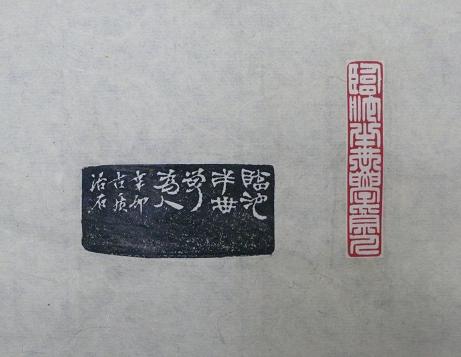 臨池半世學為人
臨池
半世
學
為人
辛卯
古質
治石